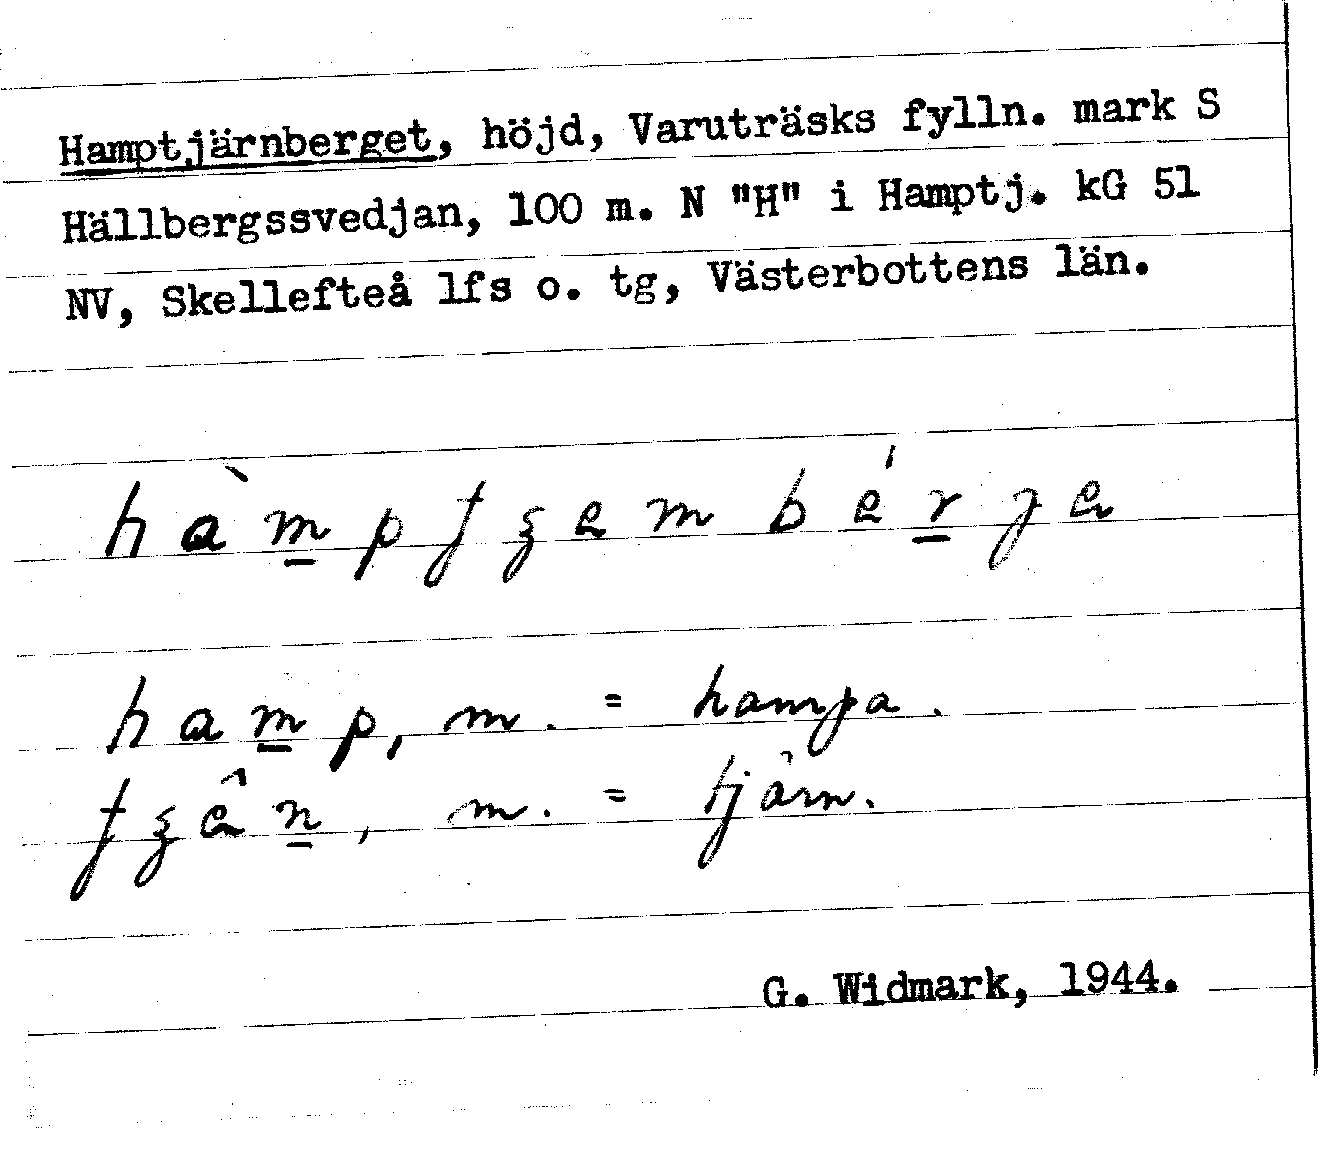 Hamptjärnberget, höjd, Varuträsks fylln. mark S
Hällbergssvedjan, 100 m. N "H" i Hamptj. kG 51
NV, Skellefteå lfs o. tg, Västerbottens län.
hamp, m. = hampa.
m. = tjärn.
G. Widmark, 1944.